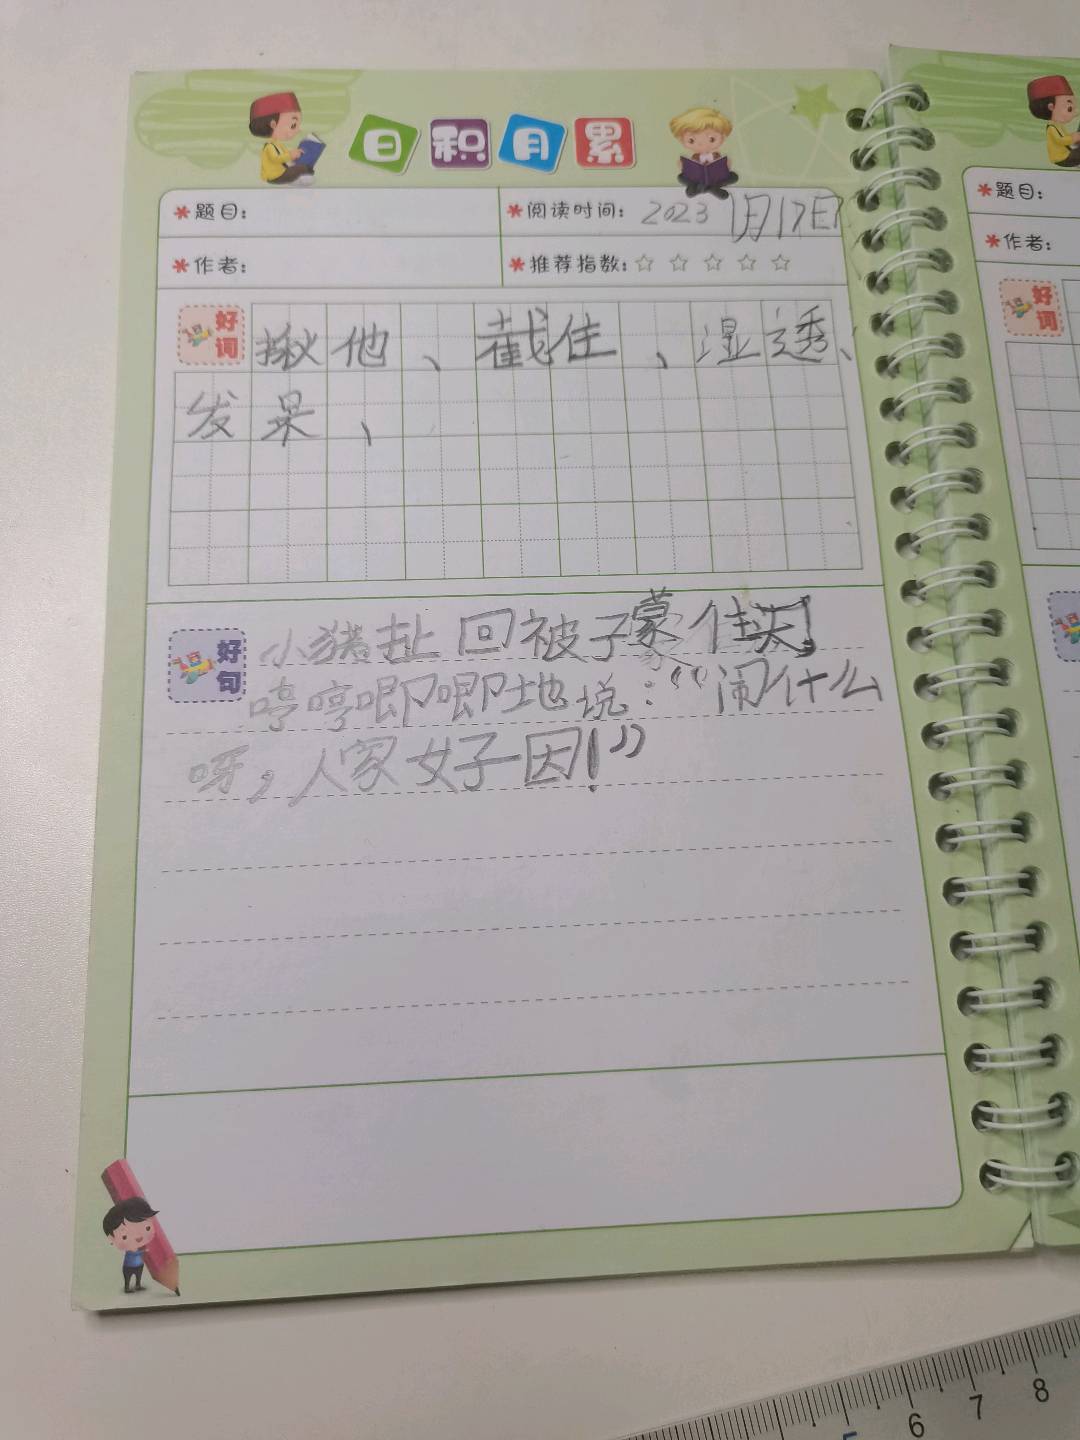 日积月累
题目：
阅读时间：2023 1月17日
作者：
推荐指数：☆ ☆ ☆ ☆ ☆
好词
揪他、截住、湿透、
发呆、
好句
小猪扯回被子蒙住头，
哼哼唧唧地说：“闹什么
呀，人家好困！”
题目：
作者：
好词
5 6 7 8